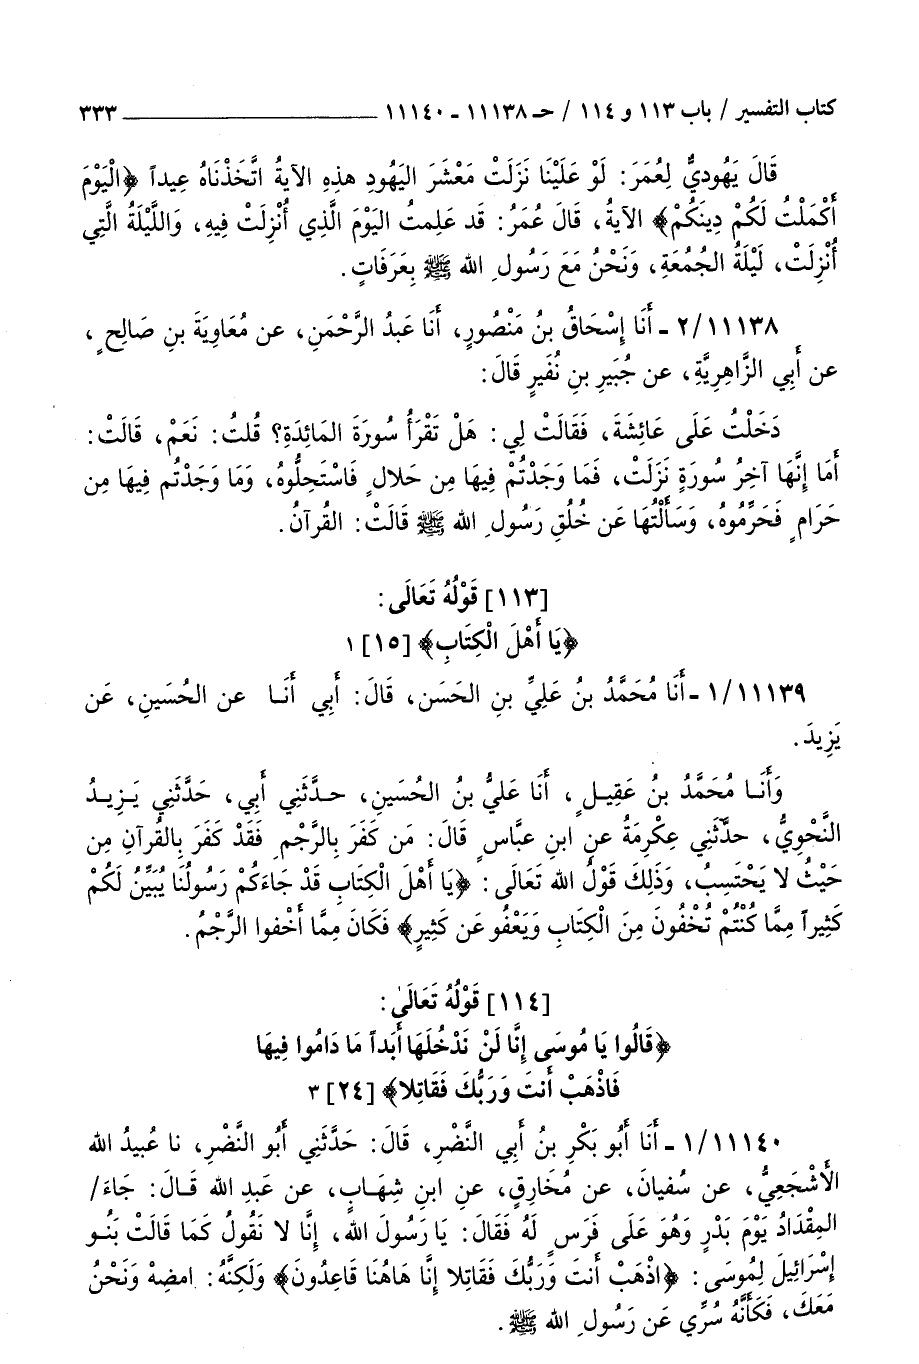 كتاب التفسير / باب ١١٣ و ١١٤ / حـ ١١١٣٨ - ١١١٤٠ ٣٣٣
قَالَ يَهُوديٌّ لِعُمَرَ: لَوْ عَلَيْنَا نَزَلَتْ مَعْشَرَ اليَهُودِ هذِهِ الآيةُ اتَّخَذْنَاهُ عِيداً ﴿الْيَوْمَ
أَكْمَلْتُ لَكُمْ دِينَكُمْ﴾ الآيةُ، قَالَ عُمَرُ: قَد عَلِمتُ اليَوْمَ الَّذِي أُنْزِلَتْ فِيهِ، وَاللَّيْلَةُ الَّتِي
أُنْزِلَتْ، لَيْلَةُ الجُمُعَةِ، وَنَحْنُ مَعَ رَسُولِ الله ﷺ بِعَرَفَاتٍ.
٢/١١١٣٨ - أَنَا إِسْحَاقُ بنُ مَنْصُورٍ، أَنَا عَبدُ الرَّحْمَنِ، عن مُعَاوِيَةَ بنِ صَالِحٍ،
عن أَبِي الزَّاهِرِيَّةِ، عن جُبَيرِ بنِ نُفَيرٍ قَالَ:
دَخَلْتُ عَلَى عَائِشَةَ، فَقَالَتْ لِي: هَلْ تَقْرَأُ سُورَةَ المَائِدَةِ؟ قُلتُ: نَعَمْ، قَالَتْ:
أَمَا إِنَّهَا آخِرُ سُورَةٍ نَزَلَتْ، فَمَا وَجَدْتُمْ فِيهَا مِن حَلالٍ فَاسْتَحِلُّوهُ، وَمَا وَجَدْتُم فِيهَا مِن
حَرَامٍ فَحَرِّمُوهُ، وَسَأَلْتُهَا عَن خُلُقِ رَسُولِ الله ﷺ قَالَتْ: القُرآنُ.
[١١٣] قَوْلُهُ تَعَالَى:
﴿يَا أَهْلَ الْكِتَابِ﴾ [١٥] ١
١/١١١٣٩ - أَنَا مُحَمَّدُ بنُ عَلِيِّ بنِ الحَسَن، قَالَ: أَبِي أَنَـا عن الحُسَينِ، عَن
يَزِيدَ.
وَأَنَـا مُحَمَّدُ بنُ عَقِيلٍ، أَنَا عَليُّ بنُ الحُسَينِ، حـدَّثَنِي أَبِي، حَدَّثَنِي يَـزِيـدُ
النَّحْوِيُّ، حدَّثَنِي عِكْرِمَةُ عنِ ابنِ عبَّاسٍ قَالَ: مَن كَفَرَ بِالرَّجْمِ فَقَدْ كَفَرَ بِالقُرآنِ مِن
حَيْثُ لا يَحْتَسِبُ، وَذَلِكَ قَوْلُ الله تَعَالَى: ﴿يَا أَهْلَ الْكِتَابِ قَدْ جَاءَكُمْ رَسُولُنَا يُبَيِّنُ لَكُمْ
كَثِيراً مِمَّا كُنْتُمْ تُخْفُونَ مِنَ الْكِتَابِ وَيَعْفُو عَن كَثِيرٍ﴾ فَكَانَ مِمَّا أَخْفوا الرَّجْمُ.
[١١٤] قَوْلُهُ تَعَالَىٰ:
﴿قَالُوا يَا مُوسَى إِنَّا لَنْ نَدْخُلَهَا أَبَداً مَا دَامُوا فِيهَا
فَاذْهَبْ أَنتَ وَرَبُّكَ فَقَاتِلا﴾ [٢٤] ٣
١/١١١٤٠ - أَنَا أَبُو بَكْرِ بنُ أَبِي النَّضْرِ، قَالَ: حَدَّثَنِي أَبُو النَّضْرِ، نا عُبيدُ الله
الأَشْجَعِيُّ، عن سُفيانَ، عن مُخَارِقٍ، عنِ ابنِ شِهَـابٍ، عن عَبدِ الله قَـالَ: جَاءَ/
المِقْدَادُ يَوْمَ بَدْرٍ وَهُوَ عَلَى فَرَسٍ لَهُ فَقَالَ: يَا رَسُولَ الله، إِنَّا لا نَقُولُ كَمَا قَالَتْ بَنُـو
إِسْرَائِيلَ لِمُوسَى: ﴿اذْهَبْ أَنتَ وَرَبُّكَ فَقَاتِلا إِنَّا هَاهُنَا قَاعِدُونَ﴾ وَلَكِنَّهُ: امضِهْ وَنَحْنُ
مَعَكَ، فَكَأَنَّهُ سُرِّي عَن رَسُولِ الله ﷺ.